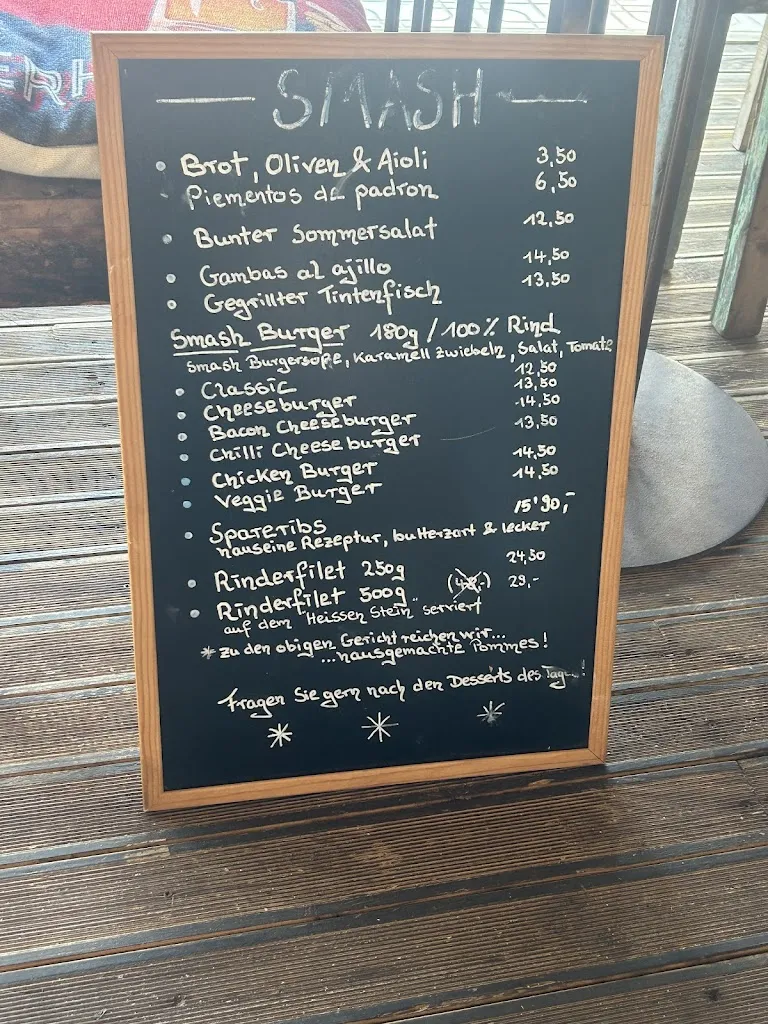 ERH
SMASH
Brot, Oliven & Aioli 3,50
Piementos de padron 6,50
Bunter Sommersalat 12,50
Gambas al ajillo 14,50
Gegrillter Tintenfisch 13,50
Smash Burger 180g / 100% Rind
Smash Burgersoße, Karamell Zwiebeln, Salat, Tomate
Classic 12,50
Cheeseburger 13,50
Bacon Cheeseburger 14,50
Chilli Cheeseburger 13,50
Chicken Burger 14,50
Veggie Burger 14,50
Spareribs 15'90,-
hauseine Rezeptur, butterzart & lecker
Rinderfilet 250g 24,50
Rinderfilet 500g (48,-) 29,-
auf dem "Heissen Stein" serviert
* zu den obigen Gericht reichen wir...
...hausgemachte Pommes!
Fragen Sie gern nach den Desserts des Tages!